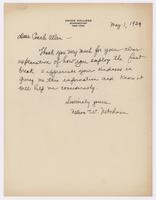 UNION COLLEGE
SCHENECTADY
NEW YORK
May 1, 1929
Dear Coach Allen -
Thank you very much for your clear
explanation of how you employ the fast
break. I appreciate your kindness in
giving me this information and know it
will help me considerably.
Sincerely yours,
Nelson W. Nitchman